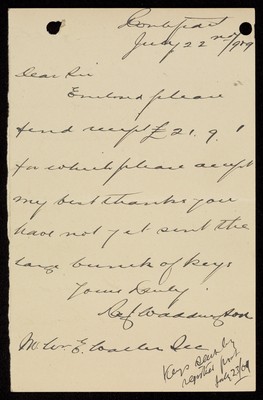 Pontefract
July 22nd 1909
Dear Sir
Enclosed please
find receipt £21.9.1
for which please accept
my best thanks you
have not yet sent the
large bunch of keys
Yours Truly
Waddington
Mr Wm. E. Walter Dec
Keys sent by
registered post
July 23/09